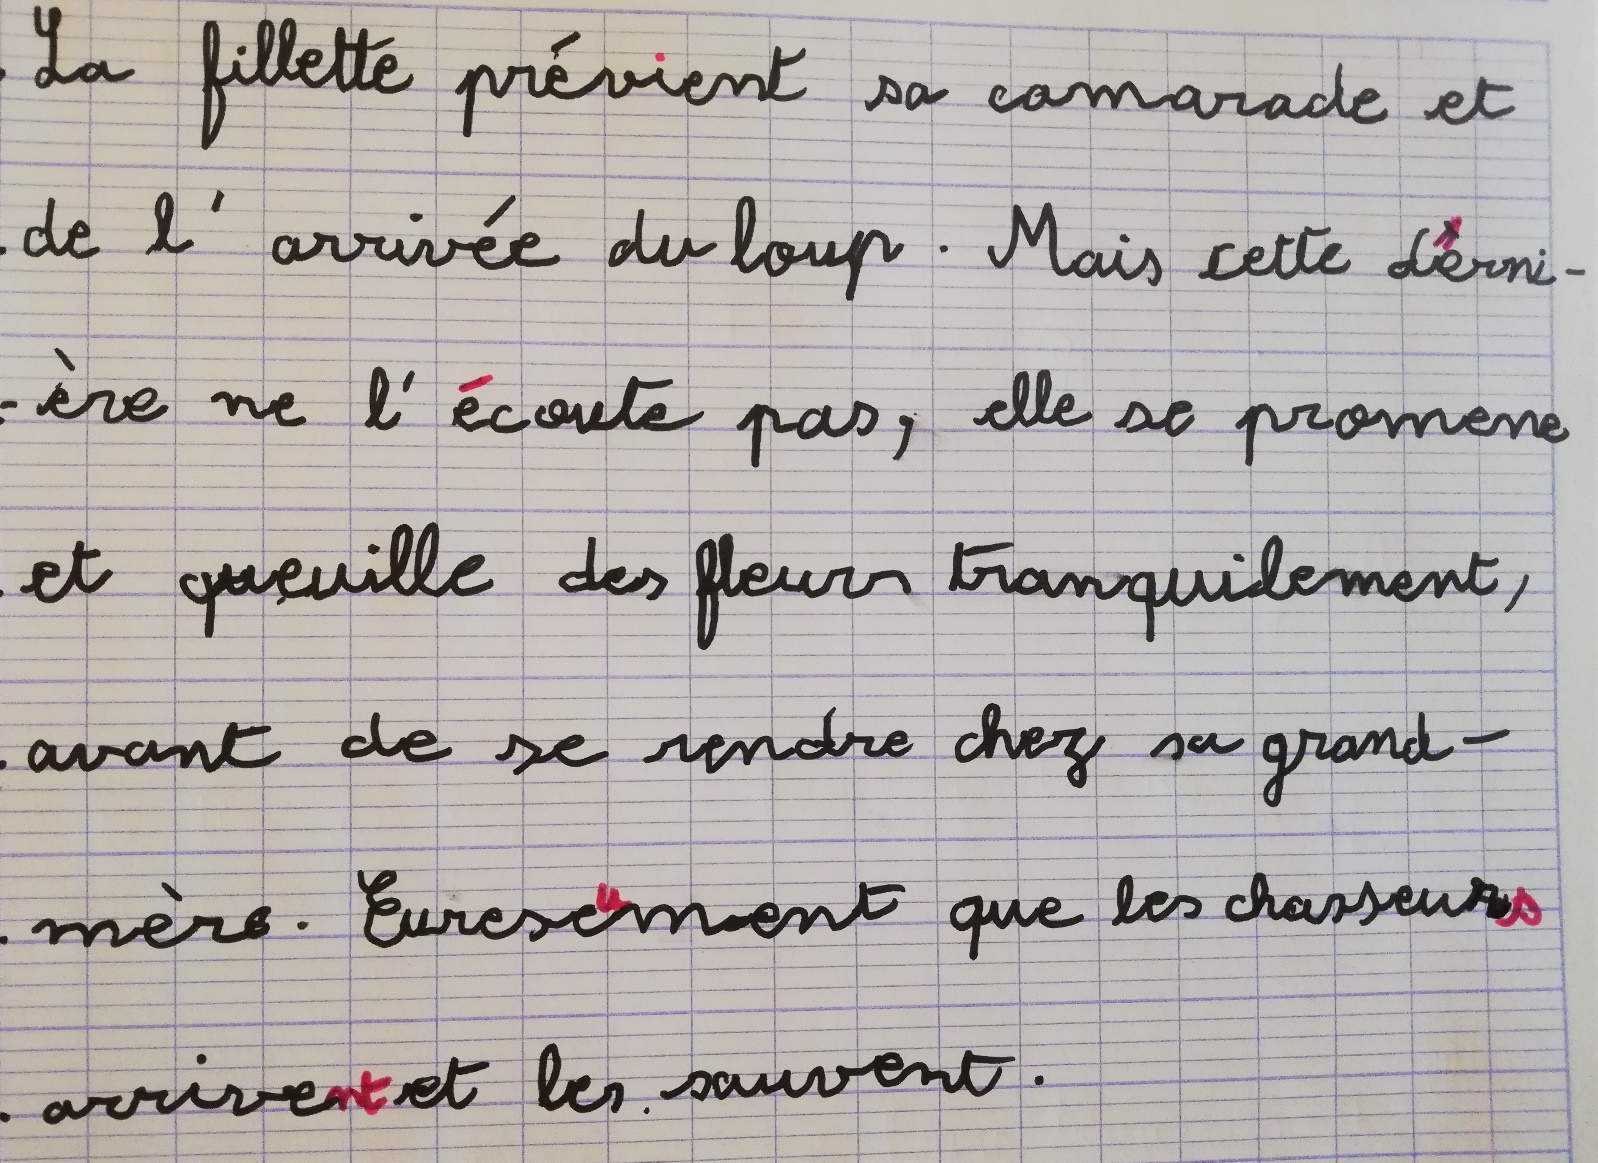 La fillette prévient sa camarade et
de l'arrivée du loup. Mais cette derni-
-ère ne l'écoute pas, elle se promene
et queuille des fleurs tranquilement,
avant de se rendre chez sa grand-
mère. Euresement que les chasseurs
arrivent et les sauvent.